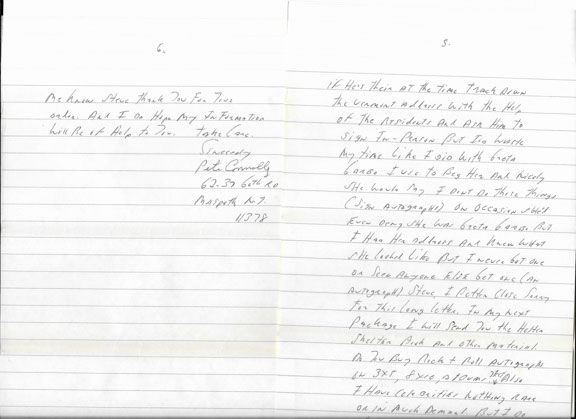 6.
me know Steve thank You For Your
order. And I Do Hope My Information
will Be of Help to You. Take Care.
Sincerely
Pete Connolly
62-39 60th Rd
Maspeth N.Y.
11378
5.
if He's their at the time track Down
the Vermont address with the Help
of the Residents and Ask Him to
sign In-Person But Do waste
my time like I Did with Greta
Garbo I use to Beg Her And Nicely
she would say I Dont Do Those Things
(sign Autographs) On Occasion she'd
Even Deny she was Greta Garbo But
I Had Her address and Knew what
she looked like But I never Got one
or Seen Anyone Else Get one (an
autograph) Steve, I Better Close Sorry
For This long letter. In My next
Package I will Send You the Helter
Skelter Book And Other Material.
Do You Buy Rock + Roll Autographs
on 3x5, 8x10, albums Also
I Have Celebrities Nothing Rare
or in Much Demand. But I Do